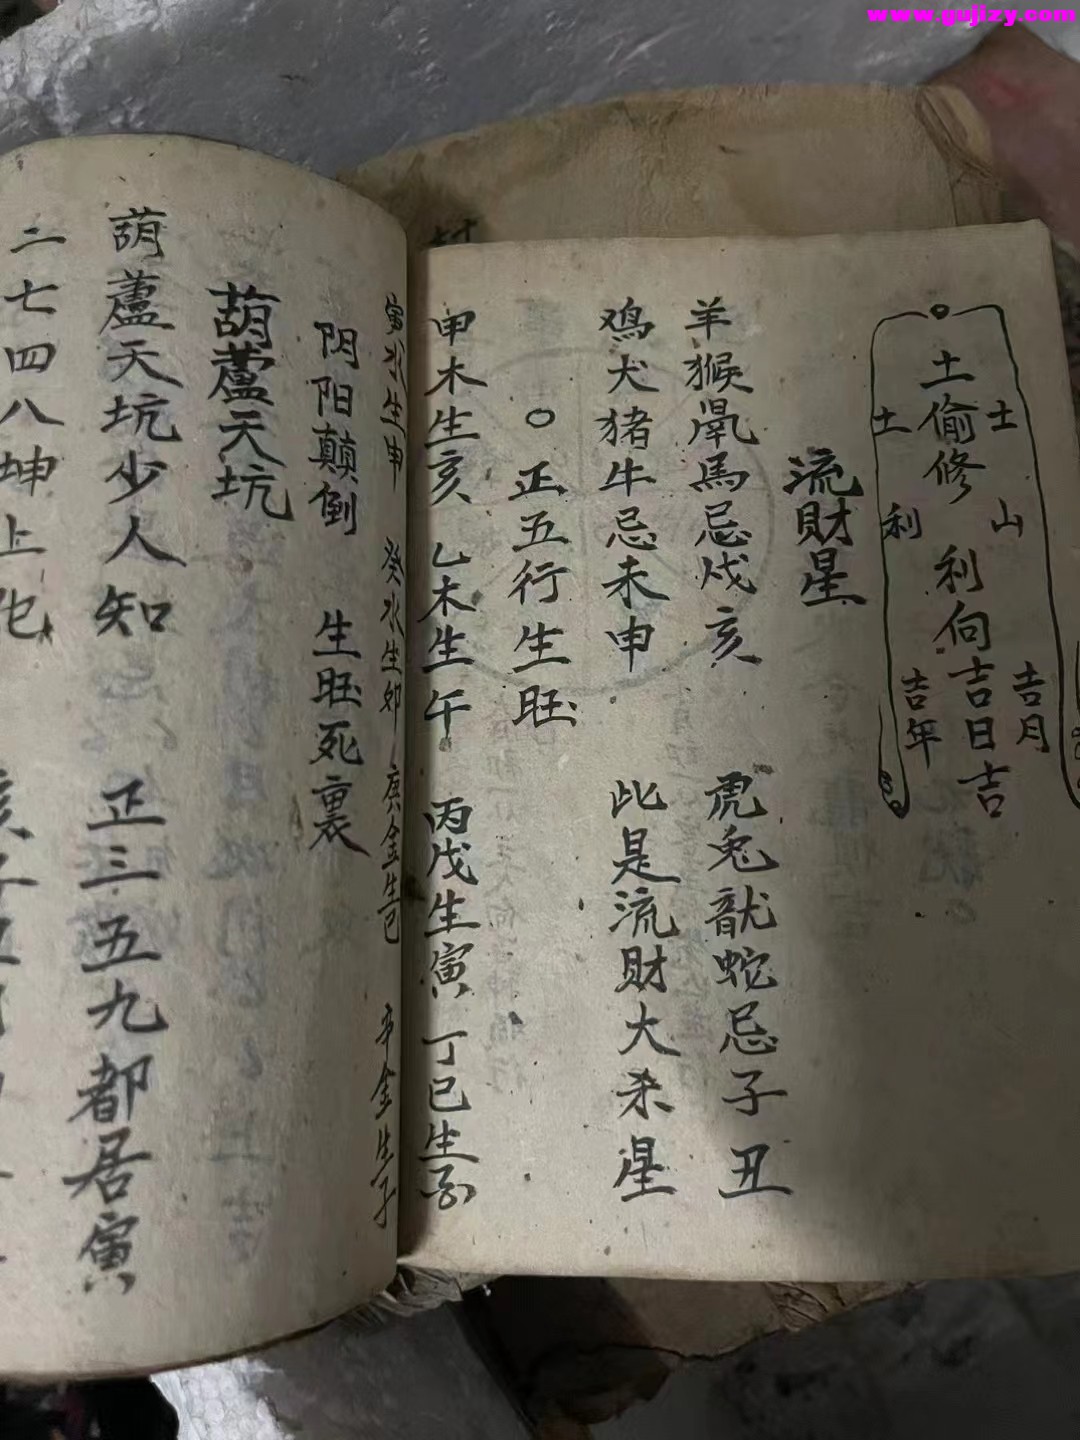 www.gujizy.com
土偷修 利向吉日吉
士 山 吉月
土 利 吉年
流財星
羊猴鼠馬忌戌亥 虎兔龍蛇忌子丑
鸡犬猪牛忌未申 此是流財大杀星
○正五行生旺
甲木生亥 乙木生午 丙戊生寅 丁己生酉
壬水生申 癸水生卯 庚金生巳 辛金生子
阴阳颠倒 生旺死裏
葫蘆天坑
葫蘆天坑少人知 正三五九都居寅
二七四八坤上